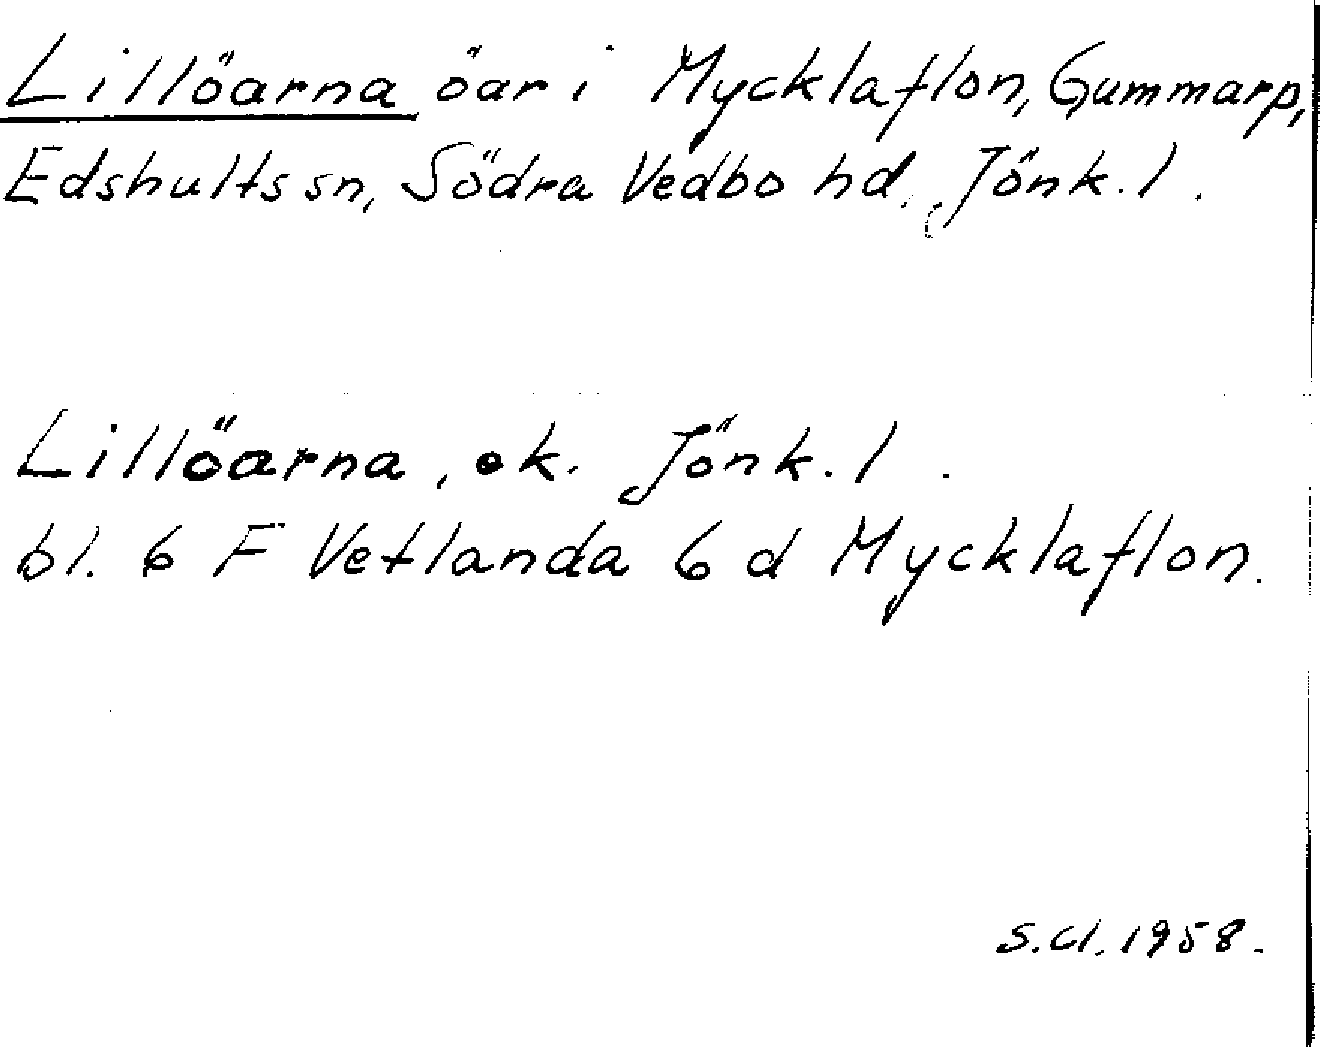 Lillöarna öar i Mycklaflon, Gummarp,
Edshults sn, Södra Vedbo hd. Jönk. l.
Lillöarna, ek. Jönk. l.
bl. 6 F Vetlanda 6 d Mycklaflon.
S.Cl. 1958.